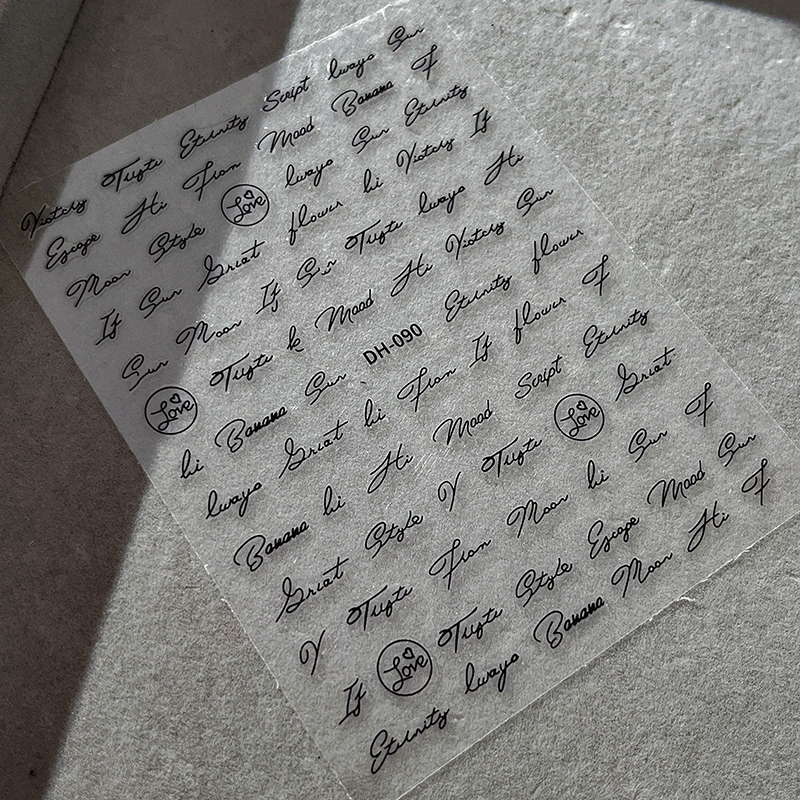 Victory Tuste Eternity Script lways Sun
Escape Hi Fran Mood Banana F
Moon Style Love lways Sun Eternity
If Sun Great flower hi Victory If
Sun Moon If Sun Tuste lways Hi
Love Tuste k Mood Hi Victory Sun
hi Banana Sun DH-090 Eternity flower
lways Great hi Fran If flower F
Banana hi Hi Mood Script Eternity
Great Style Y Tuste Love Great
Y Tuste Fran Moon hi Sun F
If Love Tuste Style Escape Mood Sun
Eternity lways Banana Moon Hi F